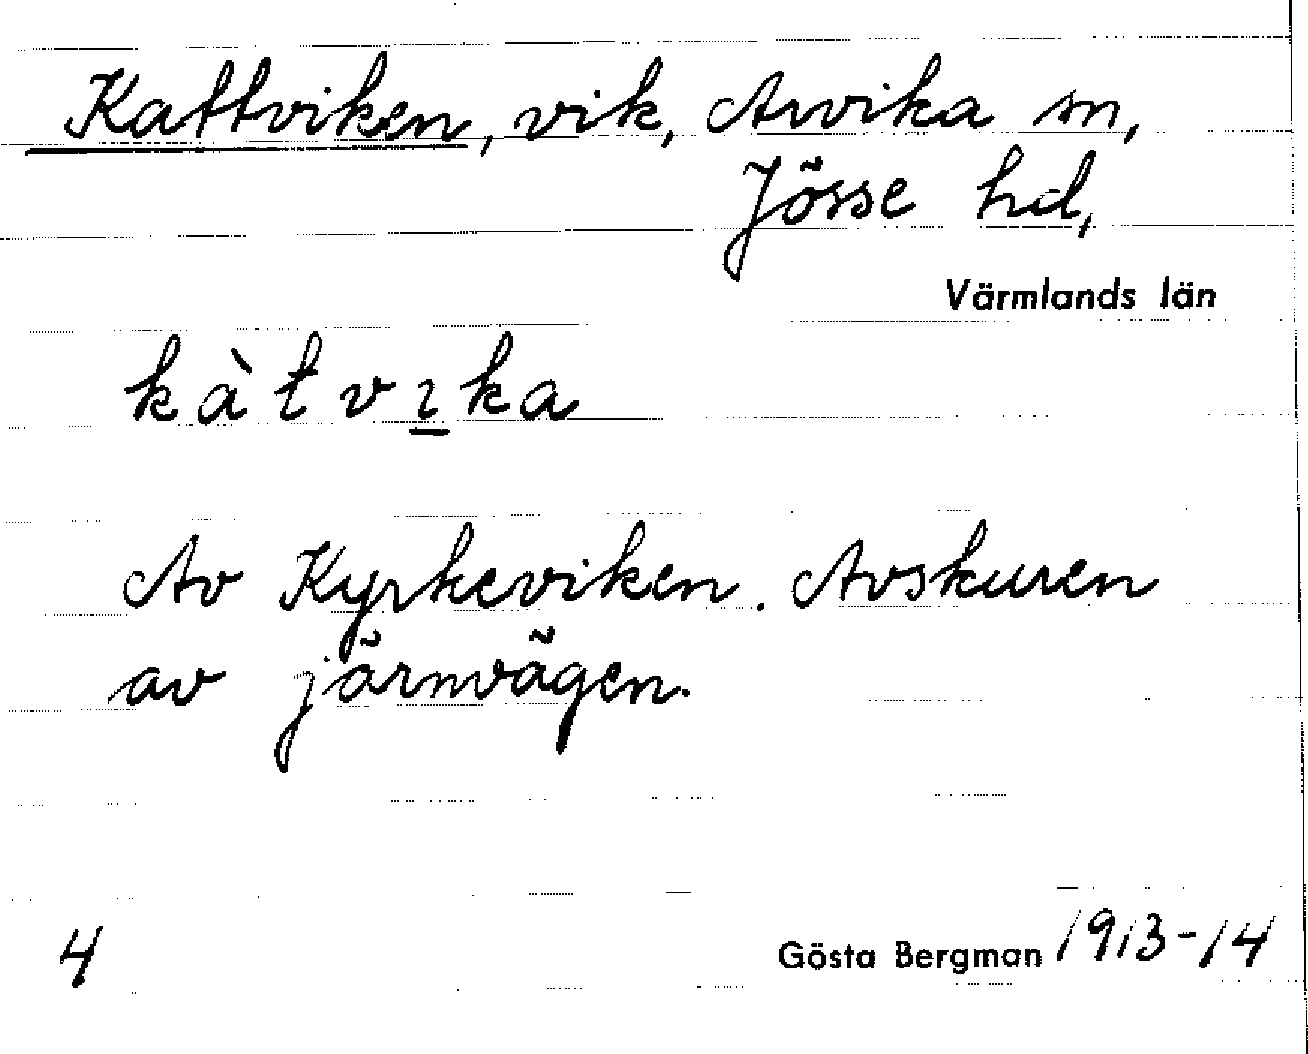 Kattviken, vik, Arvika sn,
Jösse hd,
Värmlands län
kàtvı̲ka
Av Kyrkeviken. Avskuren
av järnvägen.
4 Gösta Bergman 1913-14